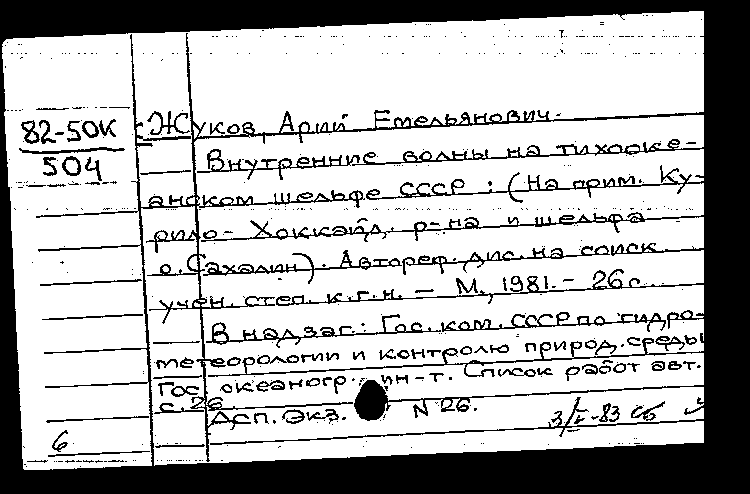 82-50К
504
Жуков, Арий Емельянович.
Внутренние волны на тихооке-
анском шельфе СССР : (На прим. Ку-
рило-Хоккайд. р-на и шельфа
о. Сахалин). Автореф. дис. на соиск.
учен. степ. к.г.н. — М., 1981. — 26 с.
В надзаг.: Гос. ком. СССР по гидро-
метеорологии и контролю природ. среды
Гос. океаногр. ин-т. Список работ авт.
с. 26
Дсп. Экз. N 26.
6